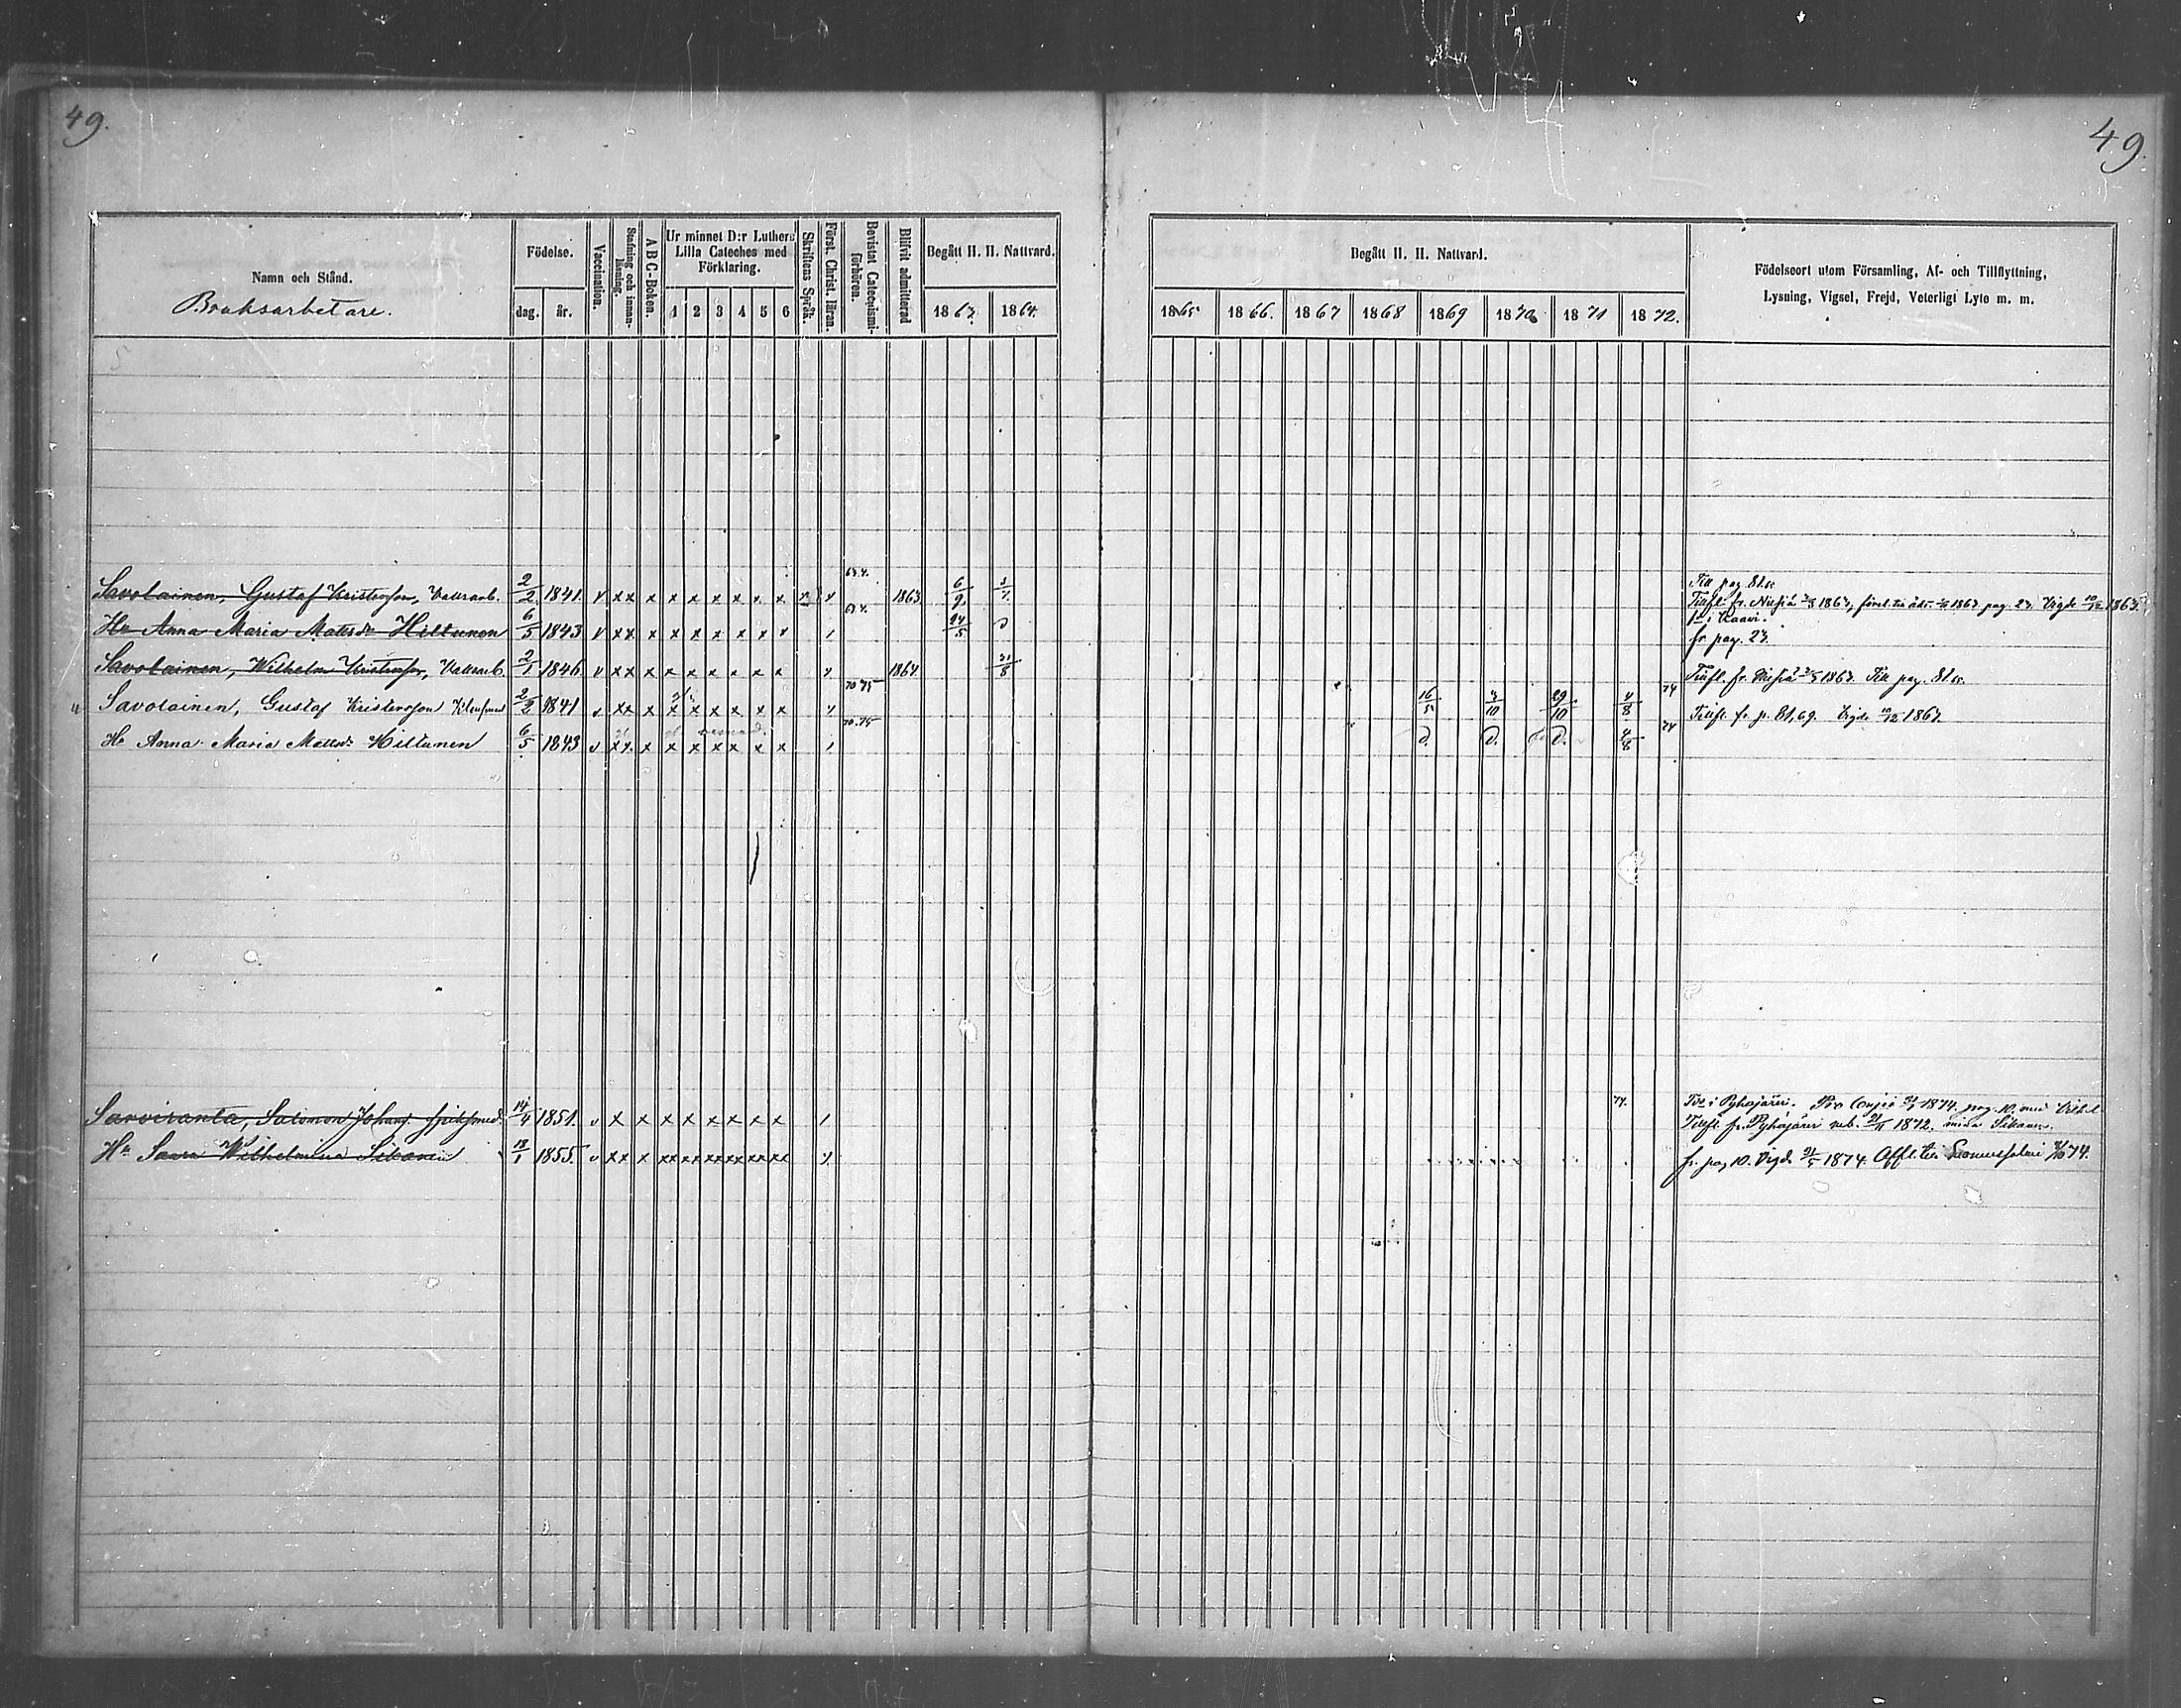 49.
49.
Namn och Stånd.
Bruksarbetare.
Födelse.
dag. år.
Vaccination.
Stafning och innanläsning.
A B C-Boken.
Ur minnet D:r Luthers Lilla Cateches med Förklaring.
1 2 3 4 5 6
Skriftens Språk.
Först. Christ. läran.
Bevistat Catechismiförhören.
Blifvit admitterad
Begått H. H. Nattvard.
1863. 1864.
Begått H. H. Nattvard.
1865 1866. 1867 1868 1869 1870 1871 1872.
Födelseort utom Församling, Af- och Tillflyttning,
Lysning, Vigsel, Frejd, Veterligt Lyte m. m.
Till pag 81.
Savolainen, Gustaf Kristersson, 2/2 1841 v xx x x x x x x x x x 1863 6/9 Tillfl. fr. Nilsiä 1863, pag. 23. Vigde 10/12 1863.
Hu Anna Maria Mattsdr Hiltunen 6/5 1843 v xx x x x x x x x 24/5 D Kaavi.
fr. pag. 23.
Savolainen, Wilhelm Kristersson, 2/1 1846 v xx x x x x x x x 1864. 31/8 Tillfl. fr. Nilsiä 1863. Till pag. 81.
70-75 74
Savolainen, Gustaf Kristersson 2/2 1841 v xx x x x x x x x 16/5 3/10 29/10 4/8 Tillfl. fr. p. 81, 69. Vigde 10/12 1863.
70-75 74
Hu Anna Maria Mattsdr Hiltunen 6/5 1843 v xx x x x x x x x D. D. D. 4/8
74. Född i Pyhäjärvi. 1874 pag. 10.
Sarviranta, Salomon Johans. 14/4 1851. v x x x x x x x x Tillfl. fr. Pyhäjärvi 1872. Sikanen.
Hu Saara Wilhelmina Sikanen 13/1 1855. v xx x xx xx xx xx xx xx fr. pag 10. Vigd. 31/5 1874. Affl. till Suonenjoki 74.